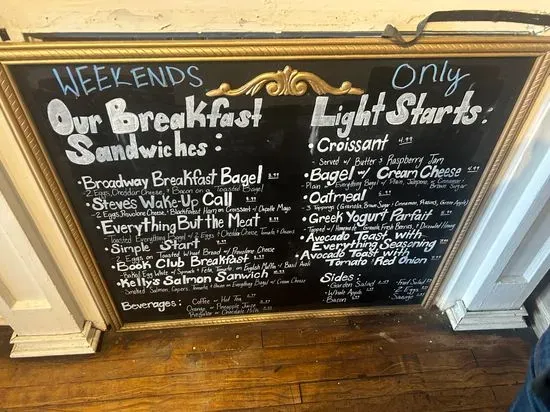 WEEKENDS Only
Our Breakfast
Sandwiches:
• Broadway Breakfast Bagel
2 Eggs, Cheddar Cheese, + Bacon on a Toasted Bagel
• Steve's Wake-Up Call
2 Eggs, Provolone Cheese, + Blackforest Ham on Croissant w/ Chipotle Mayo
• Everything But the Meat
Toasted Everything Bagel w/ 2 Eggs + Cheddar Cheese, Tomato + Onions
• Simple Start
2 Eggs on Toasted Wheat Bread w/ Provolone Cheese
• Book Club Breakfast
Baked Egg White w/ Spinach + Feta, Tomato, on English Muffin w/
• Kelly's Salmon Sanwich
Smoked Salmon, Capers, Tomato + Onion on Everything Bagel w/ Cream Cheese
Beverages: Coffee or Hot Tea
Orange or Pineapple Juice
Regular or Chocolate Milk
Light Starts:
• Croissant 4.99
- Served w/ Butter & Raspberry Jam
• Bagel w/ Cream Cheese 4.99
- Plain, Everything Bagel w/ Plain, Jalapeno or Cinnamon + Brown Sugar
• Oatmeal
3 Toppings (Granola, Brown Sugar, Cinnamon, Raisins, Green Apple)
• Greek Yogurt Parfait
- Topped w/ Homemade Granola, Fresh Berries, + Drizzled Honey
• Avocado Toast with
Everything Seasoning
• Avocado Toast with
Tomato & Red Onion
Sides:
• Garden Salad
• Whole Apple
• Bacon
• Fruit Salad
• 2 Eggs
• Sausage